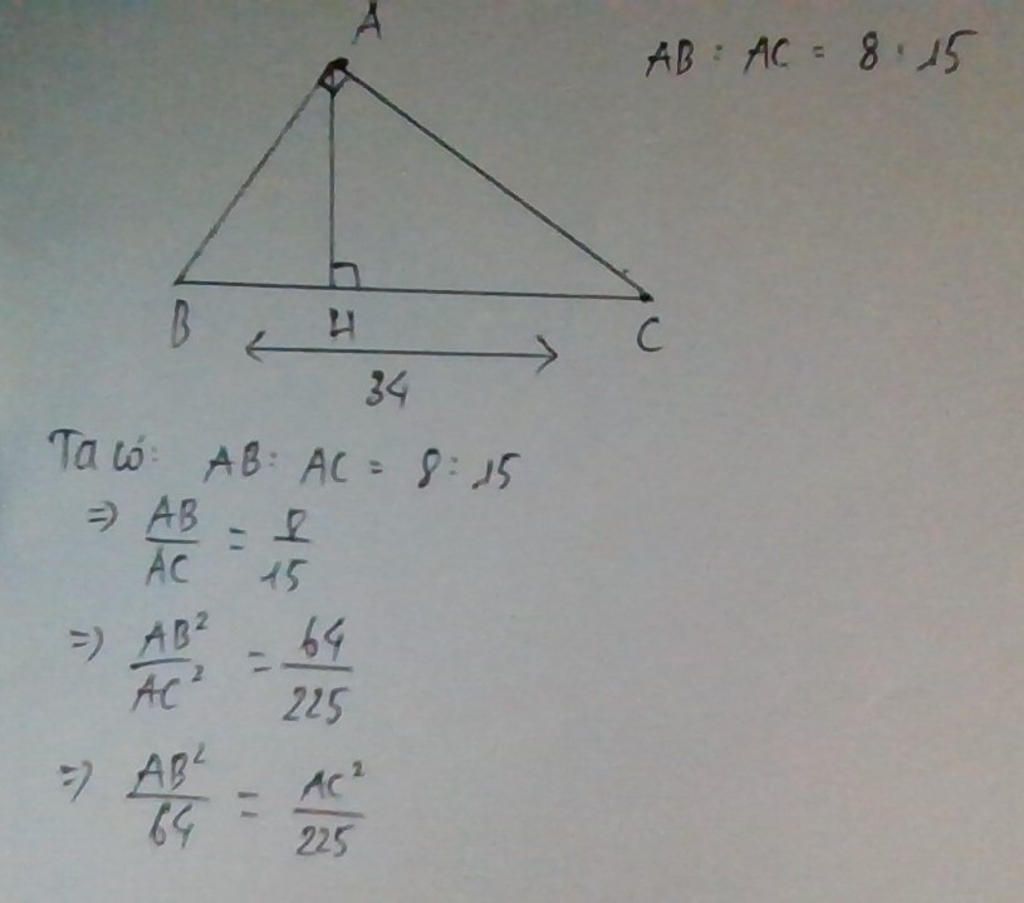 A
AB : AC = 8 : 15
B H C
34
Ta có: AB : AC = 8 : 15
=> AB/AC = 8/15
=> AB²/AC² = 64/225
=> AB²/64 = AC²/225